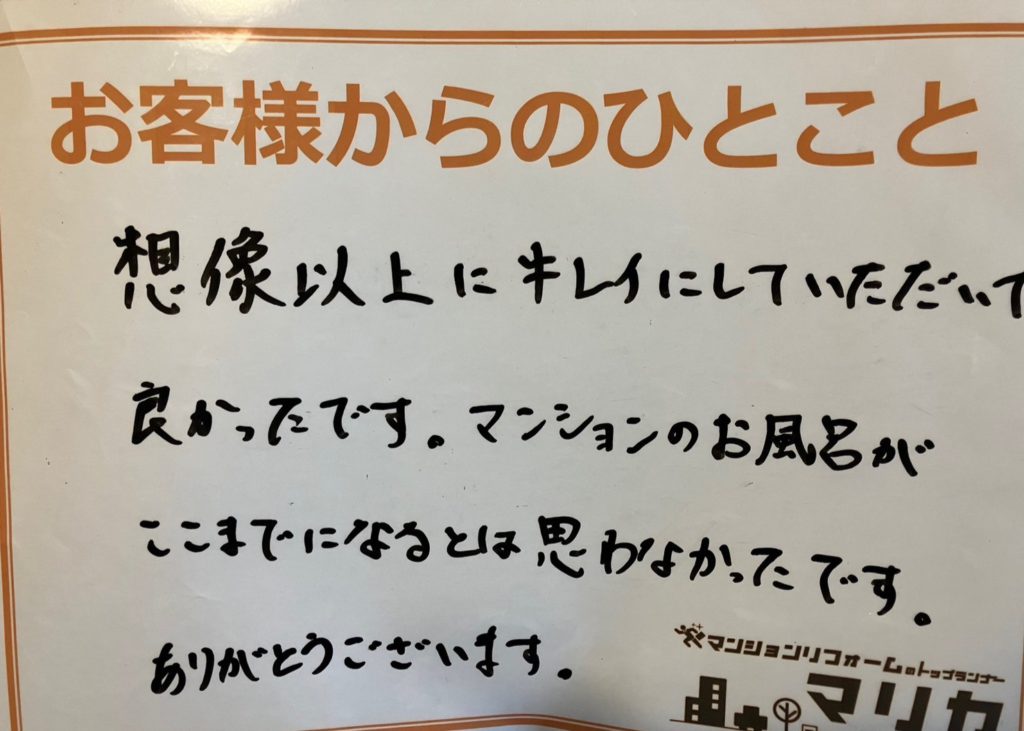 お客様からのひとこと
想像以上にキレイにしていただいて
良かったです。マンションのお風呂が
ここまでになるとは思わなかったです。
ありがとうございます。
マンションリフォームのトップランナー
マリカ